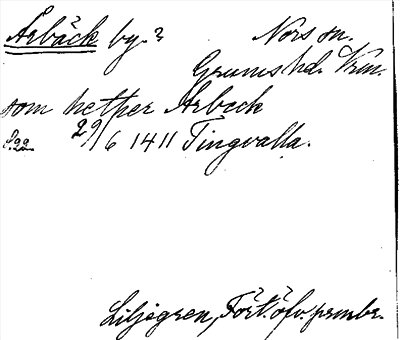 Årbäck by? Nors sn.
Grums hd. Vrm.
som hether Arbeck
29/6 1411 Tingvalla.
Liljegren, Fört. öfv. prmbr.